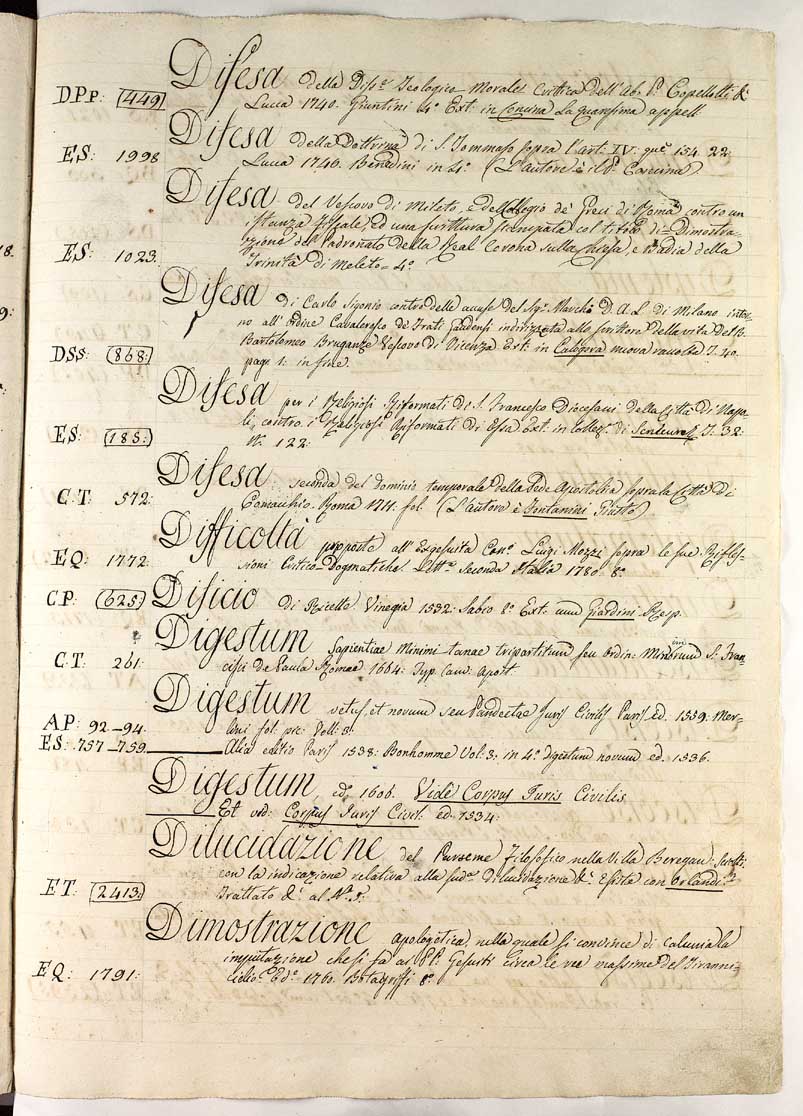 Difesa della Difa. Teologico-Morale Critica dell'Ab. Po. Copellotti &c
DPp: (449) Lucca 1740. Giuntini 4o Ext: in Concina La Quaresima appell.
Difesa della Dottrina di S. Tommaso sopra l'art. IV. que. 154. 22.
ES: 1998 Lucca 1746. Benedini in 4o. (L'autore è il P. Concina)
Difesa del Vescovo di Mileto, e del Collegio de' Greci di Roma contro un
istanza Fiscale, ed una scrittura stampata col titolo di = Dimostra-
zione del Padronato della Real Corona sulla Chiesa, e Badia della
ES: 1023. Trinità di Meleto = 4o.
Difesa di Carlo Sigonio contro delle accuse del Sigr. Marche. D. A. L. di Milano into-
no all'Ordine Cavaleresco de' Frati Gaudensi indirizzata allo scrittore della vita del B.
DSs: (868:) Bartolomeo Breganze Vescovo di Vicenza Ext: in Calogera nuova raccolta T. 40.
pag. 1: in fine.
Difesa per i Religiosi Riformati di S. Francesco Diocesani della Città di Napo-
ES: (185:) li, contro i Religiosi Riformati di Essa Ext. in Collez. di T. 32:
No. 122:
Difesa seconda del dominio temporale della Sede Apostolica sopra la Città di
C.T: 572: Comacchio. Roma 1711. fol. (L'autore è Fontanini Giusto)
Difficoltà proposte all'Exgesuita Cano. Luigi Mozzi sopra le sue Rifles-
EQ: 1772. sioni Critico-Dogmatiche. Letta. seconda Italia 1780. 8o.
CP: (625:) Dificio di Ricette. Vinegia 1532. Sabio 8o. Ext: cum Giardini Resp.
Digestum Sapientiae Minimi-tanae tripartitum seu Ordin: Minimorum S. Fran-
C.T: 261: cisci De Paula Romae 1664. Typ. Cam: Apost.
Digestum vetus, et novum seu Pandectae Juris Civilis Paris. ed. 1539. Mer-
AP: 92-94. lini fol. pic: Voll: 3.
ES: 757-759. Alia editio Paris. 1538: Bonhomme Vol: 3: in 4o. Digestum novum ed. 1536.
Digestum edo. 1606. Vide Corpus Juris Civilis
Et vid: Corpus Juris Civil. ed. 1534:
Dilucidazione del Filosofico nella Villa Beregan:
con la indicazione relativa alla suda. dilucidazione &c. Esita con Orlandi
ET: (2413:) Trattato &c. al No. 5:
Dimostrazione apologetica, nella quale si convince di calunnia la
imputazione che si fà ai PP. Gesuiti circa le ree massime del Tiranni-
EQ: 1791: cidio. Edo. 1760. 8o.